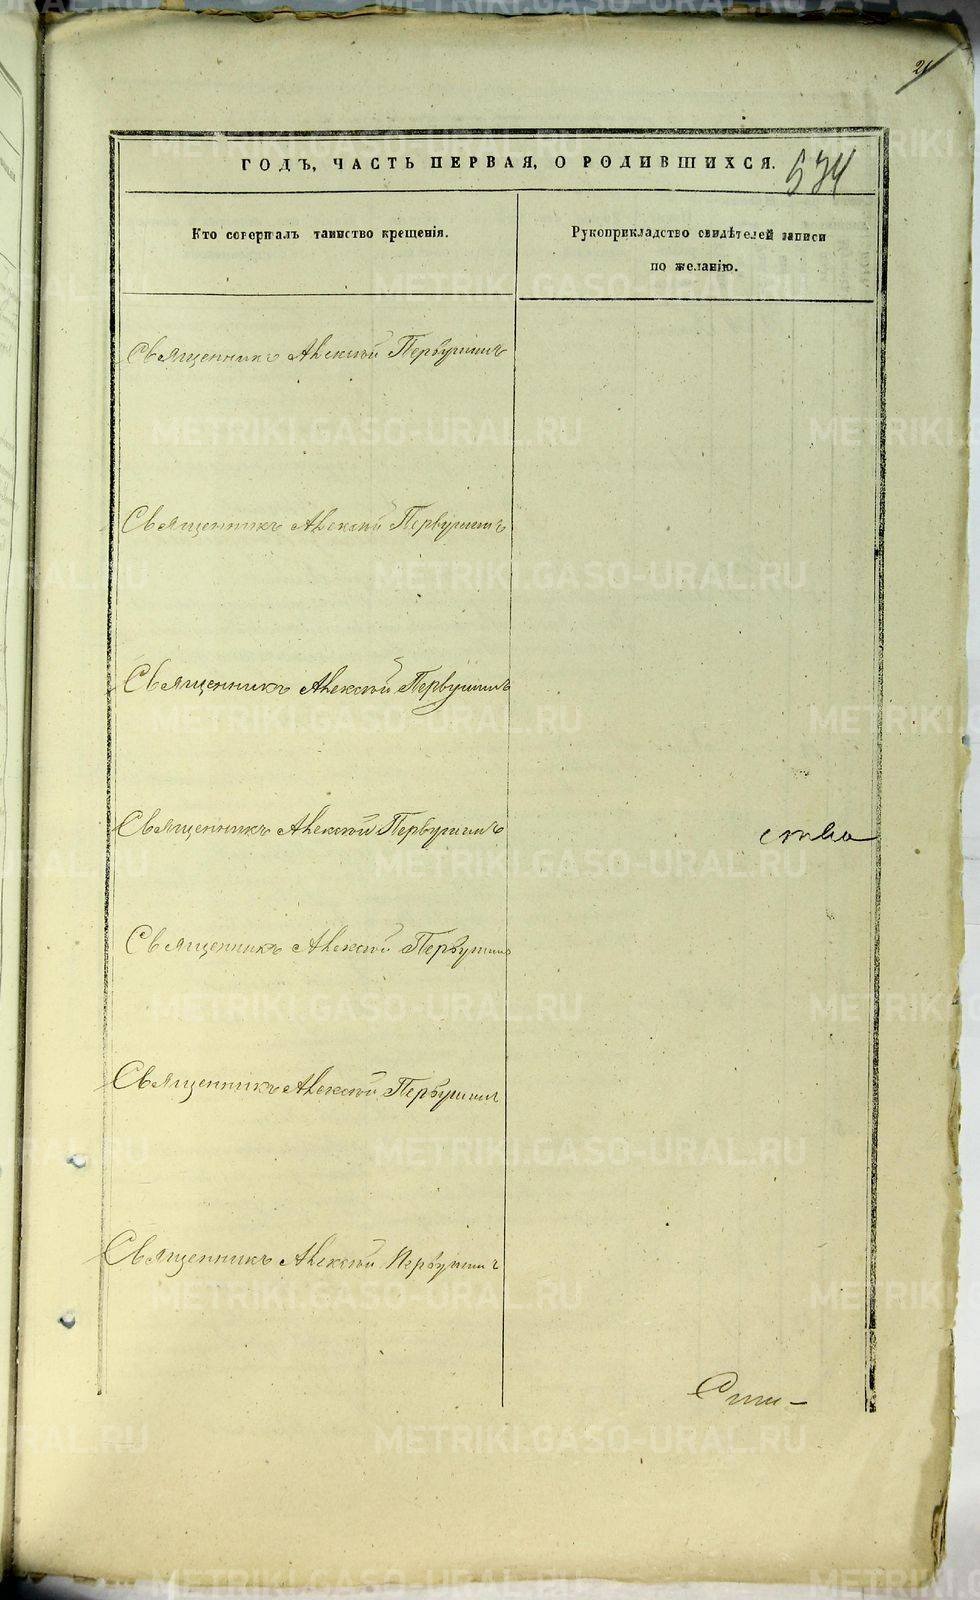 ГОДЪ, ЧАСТЬ ПЕРВАЯ, О РОДИВШИХСЯ.
574
Кто совершалъ таинство крещенія.
Рукоприкладство свидѣтелей записи
по желанію.
Священникъ Алексѣй Первушинъ
Священникъ Алексѣй Первушинъ
Священникъ Алексѣй Первушинъ
Священникъ Алексѣй Первушинъ
ства
Священникъ Алексѣй Первушинъ
Священникъ Алексѣй Первушинъ
Священникъ Алексѣй Первушинъ
METRIKI.GASO-URAL.RU